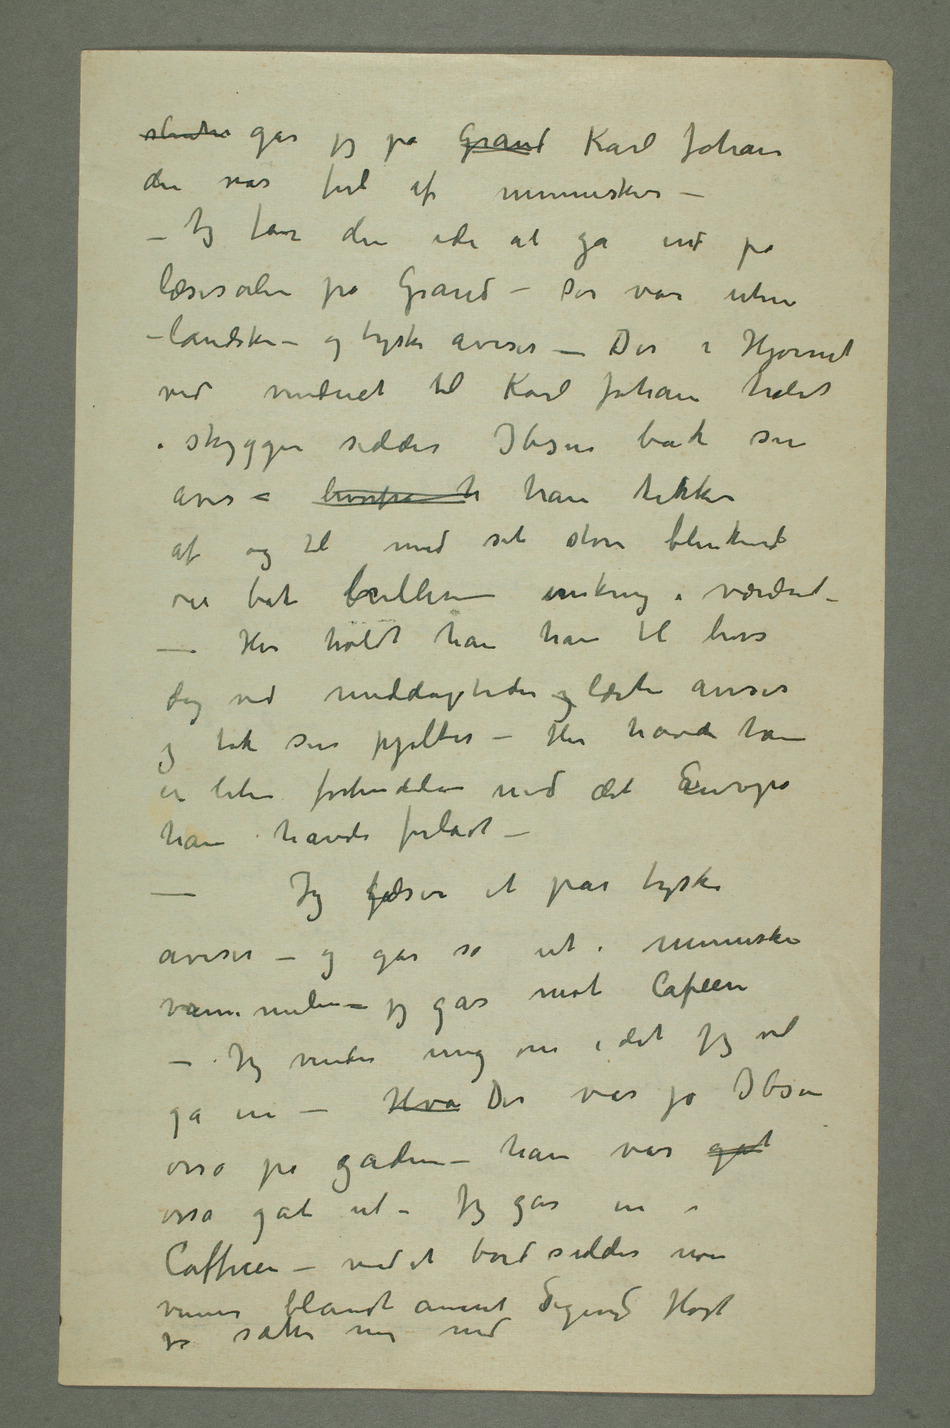 går jeg på Grand Karl Johan
den var full af mennesker –
– Jeg får den ide at gå ind på
læsesalen på Grand – Der var uten
–landske – og tyske aviser – Der i Hjørnet
ved vinduet til Karl Johan halvt
i skyggen sidder Ibsen bak sin
avis – han titter
af og til med sit store blinkende
bak brillerne omkring i værelset –
— Her holdt han han til hver
dag ved middagstider og læste aviser
og tok sin pjolter – Her havde han
en liten forbindelse med det Europa
han havde forladt –
— Jeg læser et par tyske
aviser – og går så ut i menneske
vrimmelen – jeg går mot Cafeen
– Jeg vender mig om idet Jeg vil
gå in – Hva Der var jo Ibsen
osså på gaden – han var gåt
osså gåt ut – Jeg går in i
Caffeen – ved et bord sidder noen
venner blandt annet Sigurd Høst
jeg sætter mig ned